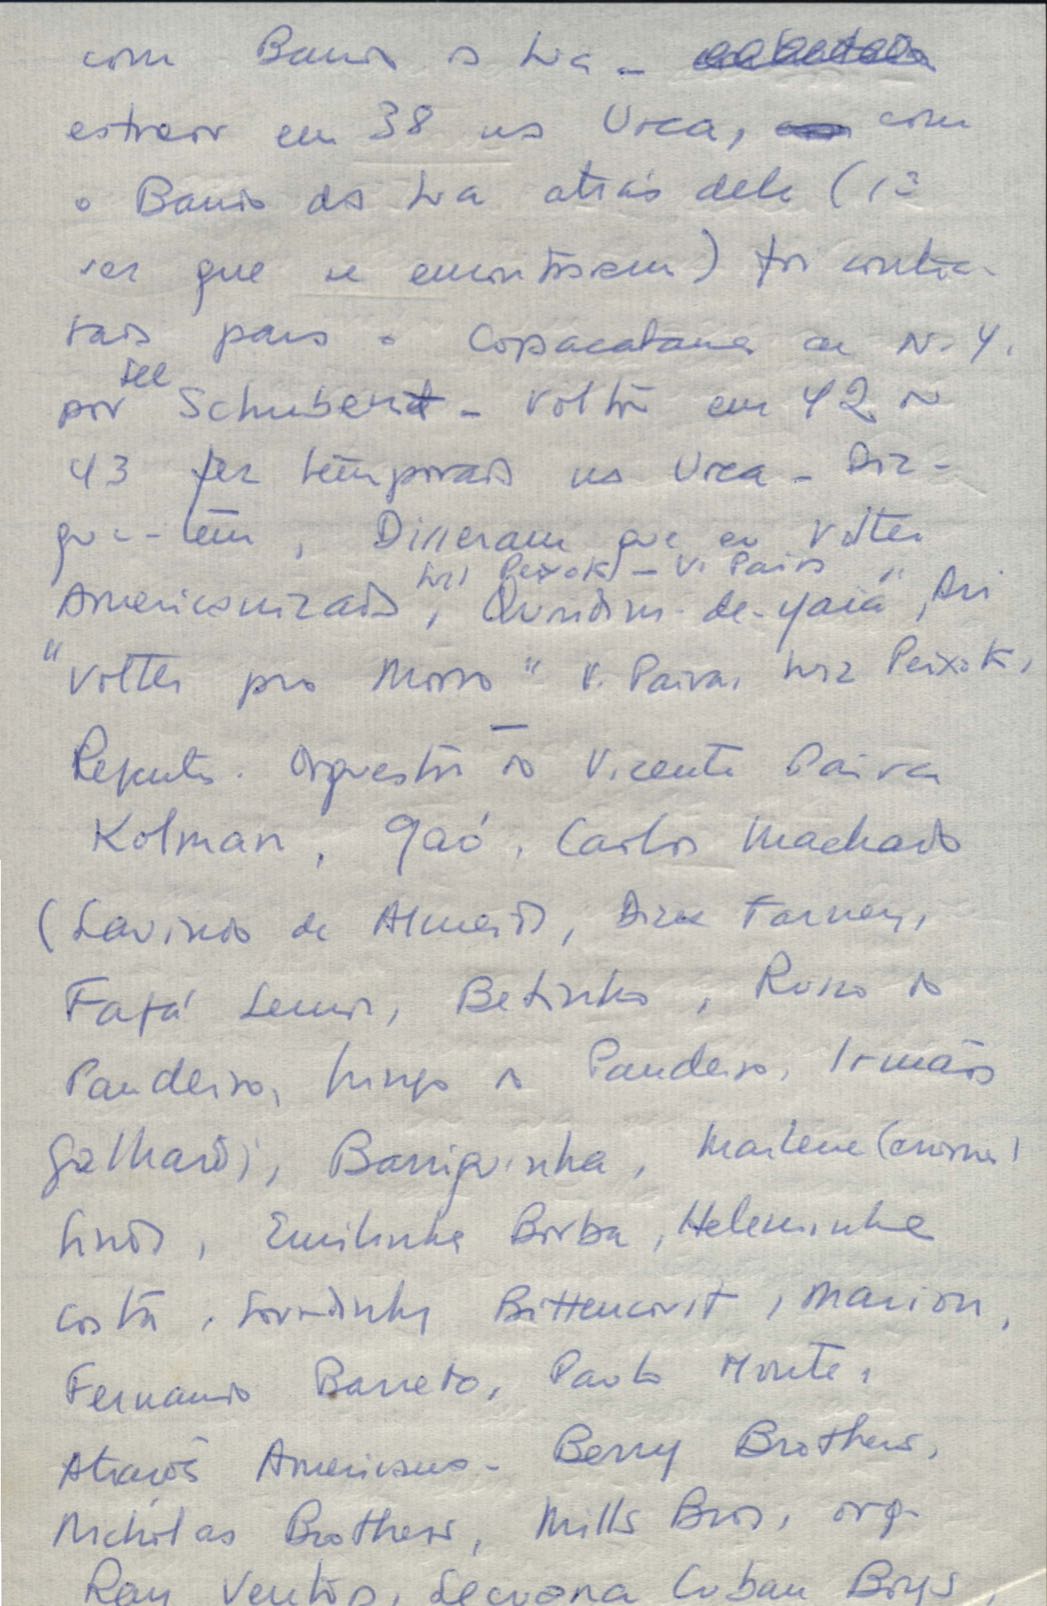 com Bando da Lua -
estreou em 38 na Urca, com
o Bando da Lua atrás dele (
ser que se encontrassem) foi contra-
tada para o Copacabana em N.Y.
por Lee Schubert - volta em 42 ou
43 fez temporada na Urca - Diz-
que-tem, Disseram que eu voltei
Americanizada, Luiz Peixoto - V. Paiva
"Quindins-de-Yaiá", Ari
"Voltei pro Morro" V. Paiva, Luiz Peixoto,
Orquestra do Vicente Paiva
Kolman, Gaó, Carlos Machado
(Laurindo de Almeida, Dick Farney,
Fafá Lemos, Betinho, Russo do
Pandeiro, do Pandeiro, Irmãos
Galhardo, Barriguinha, Marlene (
Linda, Emilinha Borba, Heleninha
Costa, Lourdinha Bittencourt, Marion,
Fernando Barreto, Paulo Monte,
Americanas - Berry Brothers,
Nicholas Brothers, Mills Bros, orq.
Ray Ventura, Lecuona Cuban Boys,